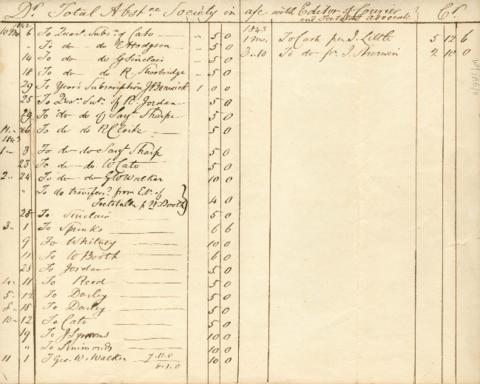 Dr. Total Abstce Society in a/c with Editor of Courier and Teetotal Advocate Cr.
1842 1843
10 Mo 6 To Quart. Subs. of Cato - 5 0 1 Mo. To Cash per J. Little 5 12 6
To do do E Hodgson - 5 0 To do pr. J. Sherwin 2 10 0
14 To do do G Sinclair - 5 0
18 To do do R 5 0
29 To Years Subscription J Benwick 1 0 0
25 To Quar. Sub. of R. Jordan 5 0
29 To do do of Sayr. Sharpe 5 0
11 26 To do do R Clarke - 5 0
1843
1 3 To do do Sayr. Sharp 5 0
23 To do do W Cato 5 0
2 24 To do do G W Walker 10 0
" To do transferd. from Edr. of
Teetotaller p. W Booth 4 0
28 To Sinclair 5 0
3 1 To Spinks 6 6
9 To Whitney 10 0
11 To W Booth 6 0
23 To Jordan 5 0
4 11 To Reed 5 0
5 12 To Darley 5 0
8 15 To Darley 5 0
10 12 To Cato 5 0
19 To J Symons 10 0
" To Simmonds 5 0
11 1 To Geo. W. Walker 10 0